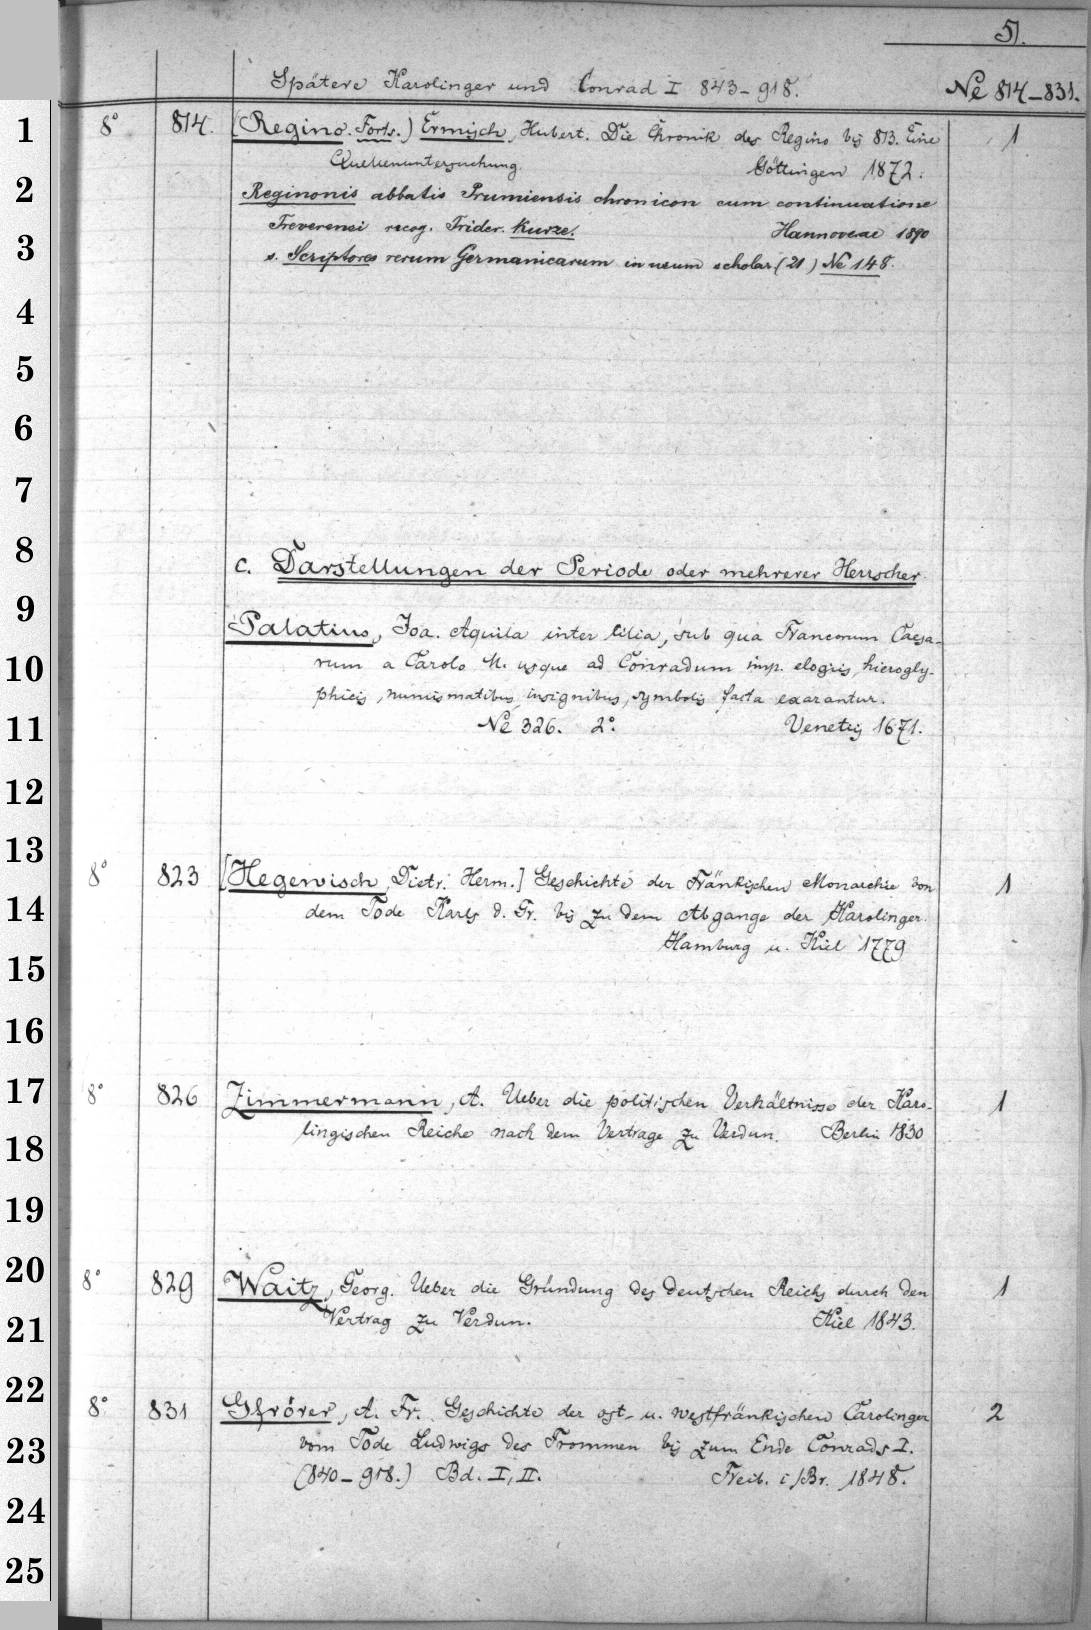 51.
Spätere Karolinger und Conrad I 843-918. Ne 814-831.
1
8° 814. (Regino. Forts.) Ermisch, Hubert. Die Chronik des Regino bis 813. Eine 1
Quellenuntersuchung. Göttingen 1872.
2
Reginonis abbatis Prumiensis chronicon cum continuatione
Treverensi recog. Frider. Kurze. Hannoverae 1890
3
s. Scriptores rerum Germanicarum in usum scholar. (21) Ne 148.
4
5
6
7
8
c. Darstellungen der Periode oder mehrerer Herrscher.
9
Palatius, Joa. Aquila inter lilia, sub qua Francorum Caesa-
10
rum a Carolo M. usque ad Conradum imp. elogiis, hierogly-
phicis, numismatibus, insignibus, symbolis facta exarantur.
11
Ne 326. 2°. Venetiis 1671.
12
13
8° 823 [Hegewisch, Dietr. Herm.] Geschichte der Fränkischen Monarchie von 1
14
dem Tode Karls d. Gr. bis zu dem Abgange der Karolinger.
Hamburg u. Kiel 1779
15
16
17
8° 826 Zimmermann, A. Ueber die politischen Verhältnisse der Karo- 1
lingischen Reiche nach dem Vertrage zu Verdun. Berlin 1830
18
19
20
8° 829 Waitz, Georg. Ueber die Gründung des deutschen Reichs durch den 1
21
Vertrag zu Verdun. Kiel 1843.
22
8° 831 Gfrörer, A. Fr. Geschichte der ost- u. westfränkischen Carolinger 2
23
vom Tode Ludwigs des Frommen bis zum Ende Conrads I.
(840-918.) Bd. I, II. Freib. i/Br. 1848.
24
25